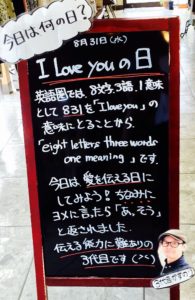 今日は何の日?
8月31日(水)
I love youの日
英語圏では、8文字、3語、1意味
として831を「I love you」の
意味にとることから
「eight letters three words
one meaning」です。
今日は愛を伝える日に
してみよう! ちなみに
ヨメに言たら「あ、そう」
と返されました。
伝える能力に難ありの
3代目です(>_<)